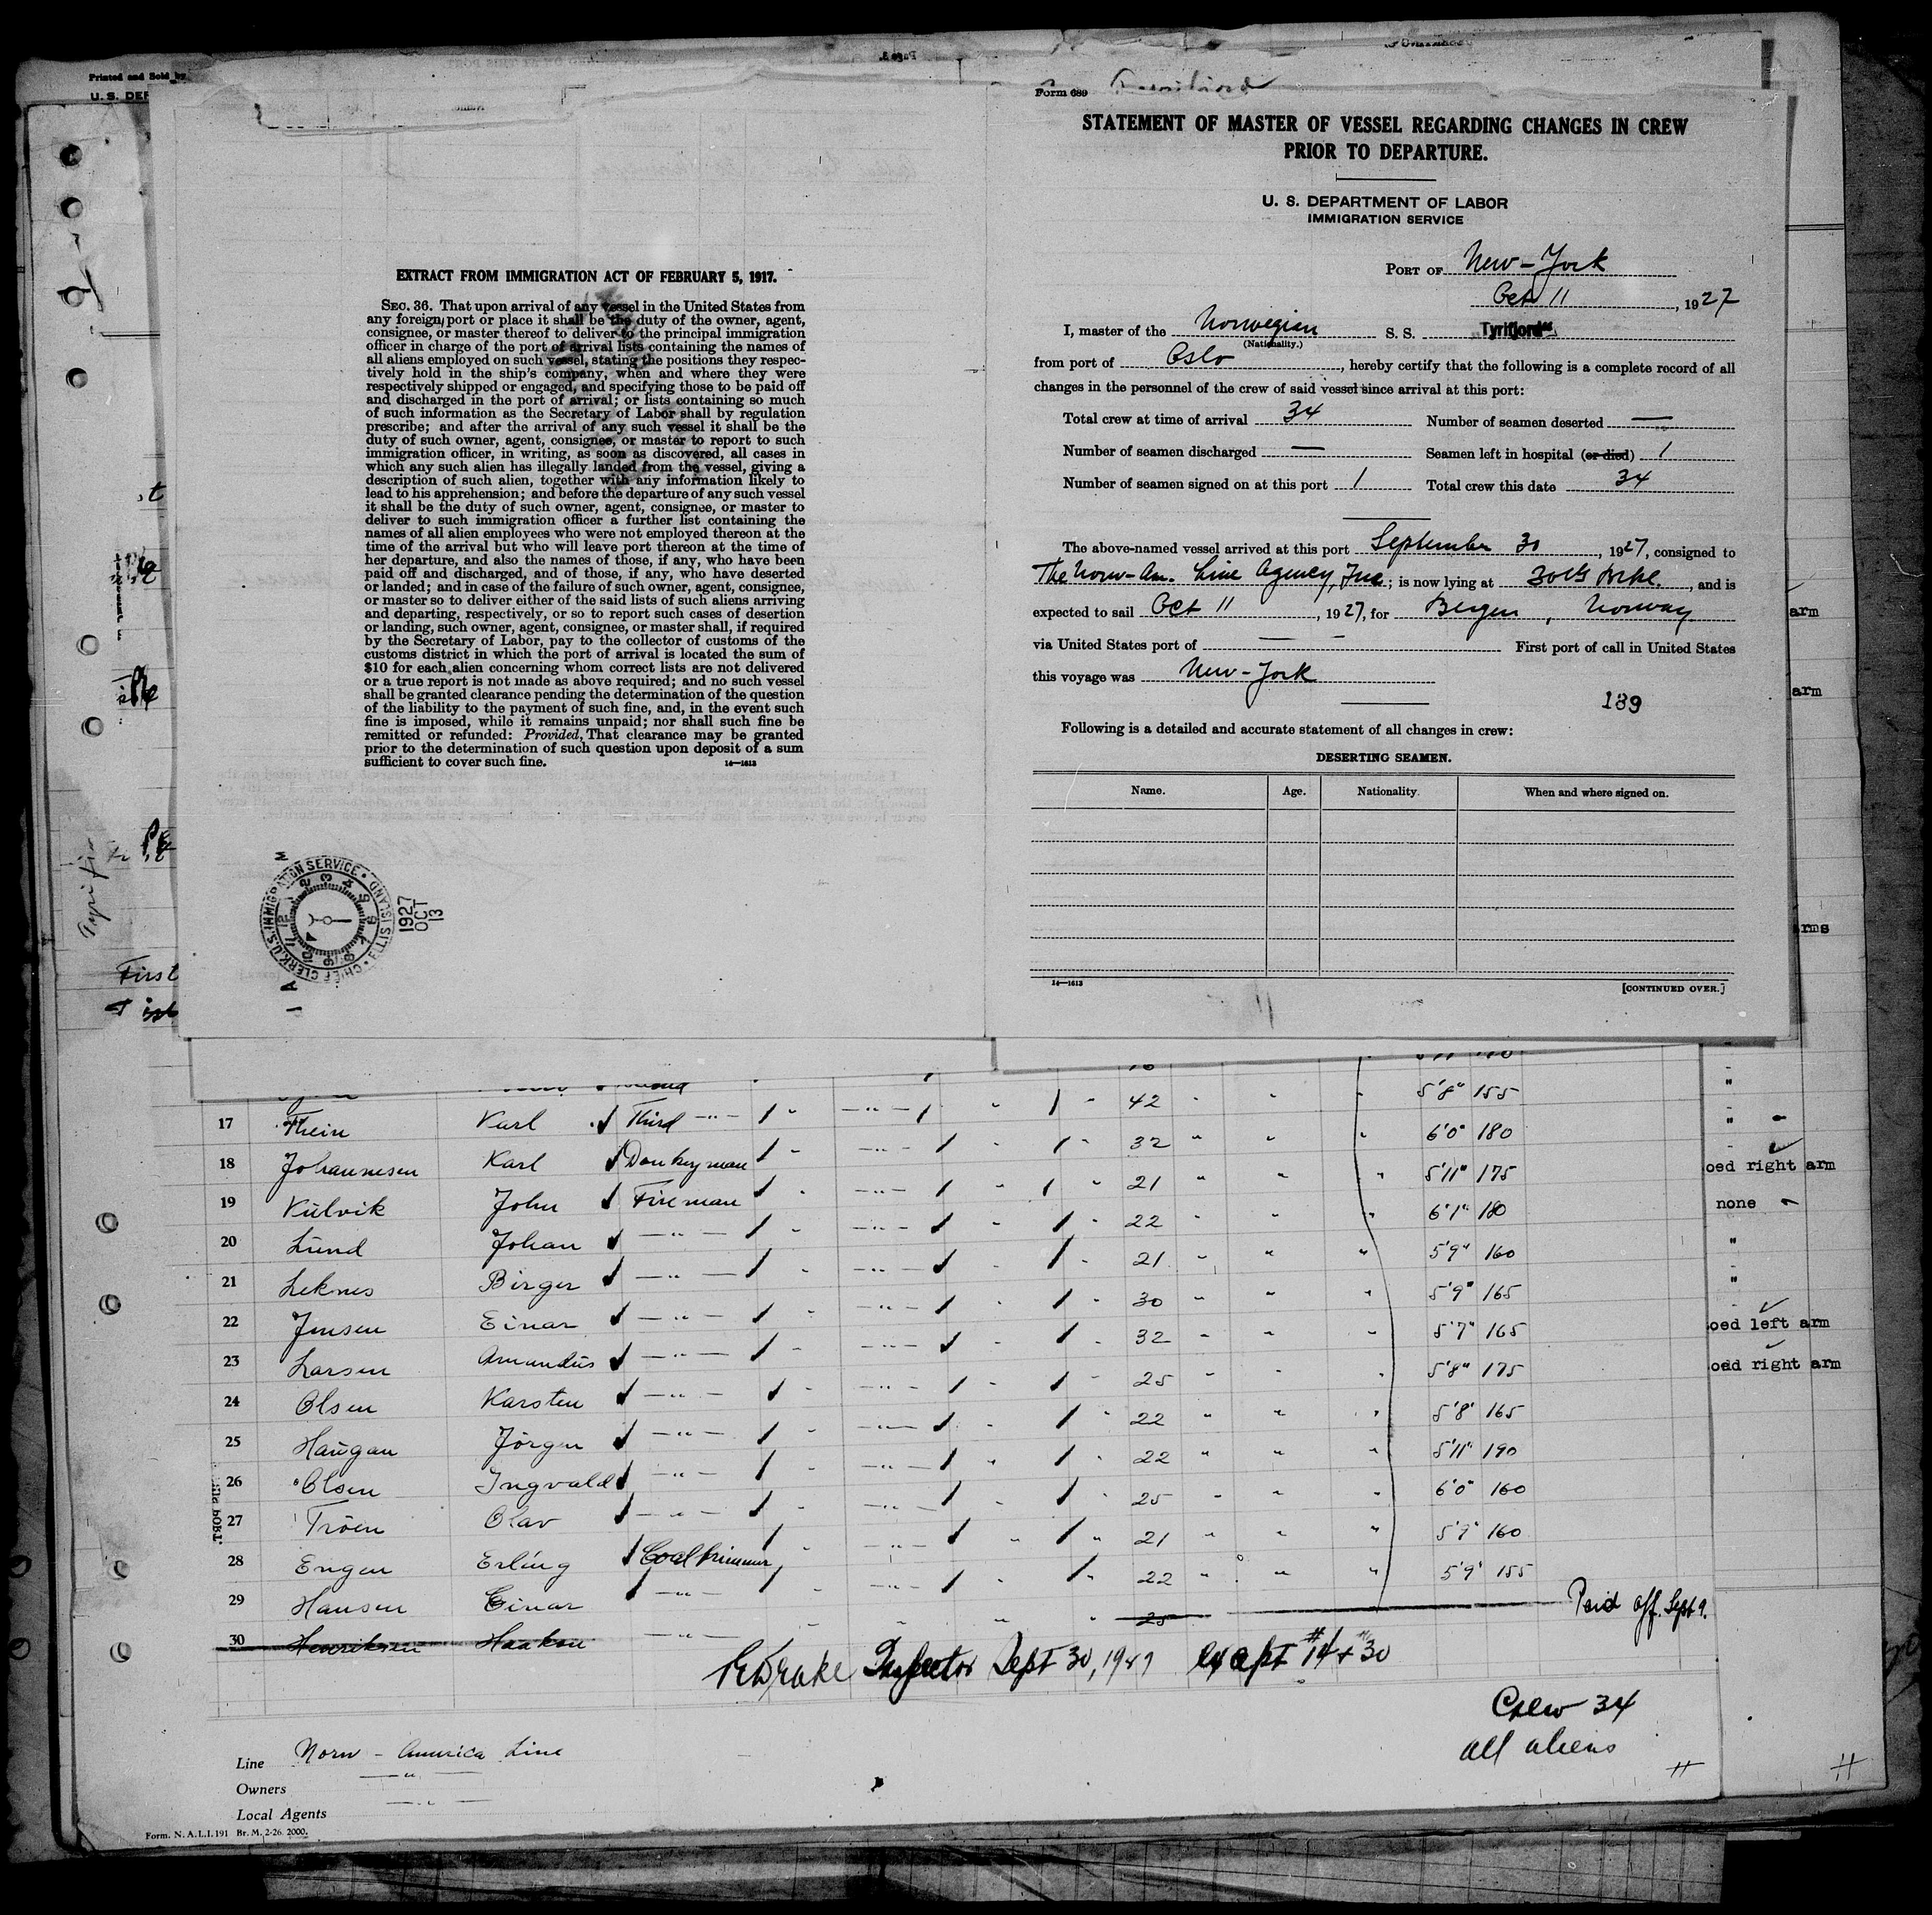 Printed and Sold by
U. S. DEP
EXTRACT FROM IMMIGRATION ACT OF FEBRUARY 5, 1917.
SEC. 36. That upon arrival of any vessel in the United States from
any foreign port or place it shall be the duty of the owner, agent,
consignee, or master thereof to deliver to the principal immigration
officer in charge of the port of arrival lists containing the names of
all aliens employed on such vessel, stating the positions they respec-
tively hold in the ship's company, when and where they were
respectively shipped or engaged, and specifying those to be paid off
and discharged in the port of arrival; or lists containing so much
of such information as the Secretary of Labor shall by regulation
prescribe; and after the arrival of any such vessel it shall be the
duty of such owner, agent, consignee, or master to report to such
immigration officer, in writing, as soon as discovered, all cases in
which any such alien has illegally landed from the vessel, giving a
description of such alien, together with any information likely to
lead to his apprehension; and before the departure of any such vessel
it shall be the duty of such owner, agent, consignee, or master to
deliver to such immigration officer a further list containing the
names of all alien employees who were not employed thereon at the
time of the arrival but who will leave port thereon at the time of
her departure, and also the names of those, if any, who have been
paid off and discharged, and of those, if any, who have deserted
or landed; and in case of the failure of such owner, agent, consignee,
or master so to deliver either of the said lists of such aliens arriving
and departing, respectively, or so to report such cases of desertion
or landing, such owner, agent, consignee, or master shall, if required
by the Secretary of Labor, pay to the collector of customs of the
customs district in which the port of arrival is located the sum of
$10 for each alien concerning whom correct lists are not delivered
or a true report is not made as above required; and no such vessel
shall be granted clearance pending the determination of the question
of the liability to the payment of such fine, and, in the event such
fine is imposed, while it remains unpaid; nor shall such fine be
remitted or refunded: Provided, That clearance may be granted
prior to the determination of such question upon deposit of a sum
sufficient to cover such fine. 14—1613
CHIEF CLERK, U.S. IMMIGRATION SERVICE • ELLIS ISLAND
1927
OCT
13
Form 689
STATEMENT OF MASTER OF VESSEL REGARDING CHANGES IN CREW
PRIOR TO DEPARTURE.
U. S. DEPARTMENT OF LABOR
IMMIGRATION SERVICE
PORT OF New-York
Oct 11, 1927
I, master of the Norwegian S. S. "Tyrifjord"
(Nationality.)
from port of Oslo, hereby certify that the following is a complete record of all
changes in the personnel of the crew of said vessel since arrival at this port:
Total crew at time of arrival 34 Number of seamen deserted —
Number of seamen discharged — Seamen left in hospital (or died) 1
Number of seamen signed on at this port 1 Total crew this date 34
The above-named vessel arrived at this port September 30, 1927, consigned to
The Norw-Am. Line Agency, Inc.; is now lying at 30th , and is
expected to sail Oct 11, 1927, for Bergen, Norway
via United States port of — — First port of call in United States
this voyage was New-York
139
Following is a detailed and accurate statement of all changes in crew:
DESERTING SEAMEN.
Name. Age. Nationality. When and where signed on.
14—1613 [CONTINUED OVER.]
First
arm
arm
arms
17 Thein Karl Third —"— 42 5'8" 155
18 Johannesen Karl Donkeyman 32 6'0" 180
19 Kulvik John Fireman 21 5'11" 175
20 Lund Johan —"— 22 6'1" 180
21 Leknes Birger —"— 21 5'9" 160
22 Jensen Einar —"— 30 5'9" 165
23 Larsen Amandus —"— 32 5'7" 165
24 Olsen Karsten —"— 25 5'8" 175
25 Haugan Jörgen —"— 22 5'8" 165
26 Olsen Ingvald —"— 22 5'11" 190
27 Tröen Olav —"— 25 6'0" 160
28 Engen Erling Coaltrimmer 21 5'9" 160
29 Hansen Einar —"— 22 5'9" 155
30 Henriksen Haakon —"— 25 Paid off. Sept 9.
oed right arm
none
"
"
oed left arm
oed right arm
Drake Inspector Sept 30, 1927 except #14 + 30
Crew 34
all aliens
Line Norw - America Line
Owners —"—
Local Agents —"—
Form. N. A. L. I. 191 Br. M. 2-26. 2000.